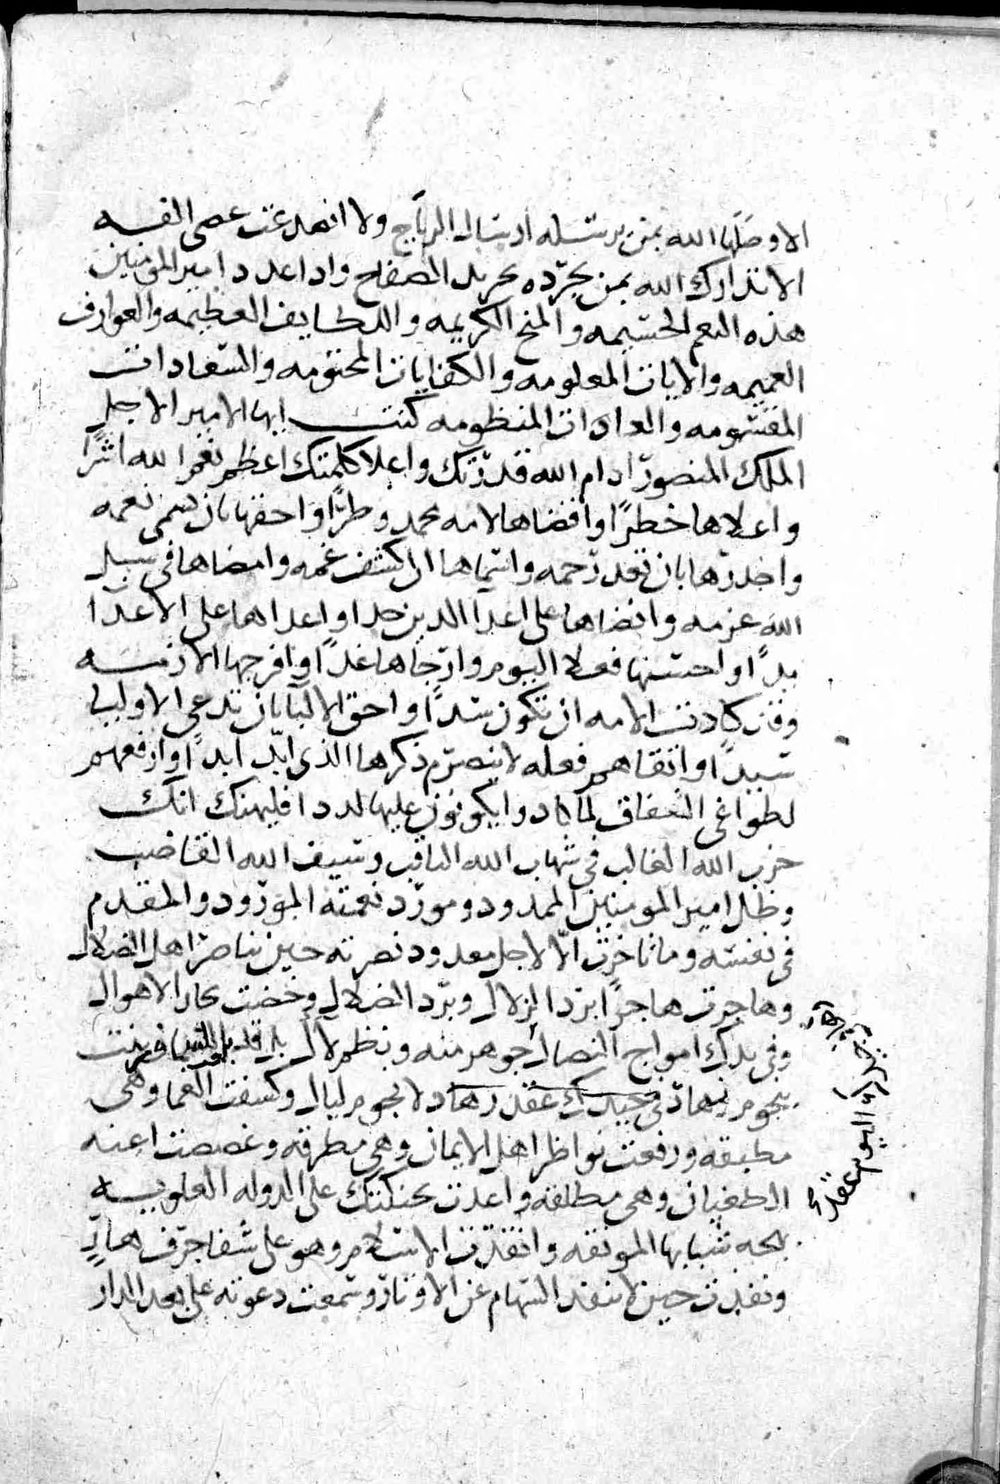 الا وصلها الله بمن يرسله ارسال الرياح ولا انصدعت عصى الفه
الا تدارك الله بمن يجرده تجريد الصفاح واذا عدد امير المومنين
هذه النعم الجسيمه والمنح الكريمه واللطايف العظيمه والعوارف
العميمه والايات المعلومه والكفايات المحتومه والسعادات
المقسومه والعادات المنظومه كنت ايها الامير الاجل
الملك المنصور ادام الله قدرتك واعلا كلمتك اعظم نعم الله اثرًا
واعلاها خطرًا واقضاها لامه محمد وطرًا واحقها بان تسمى نعمه
واجدرها بان تعد رحمه واسماها ان كشف غمه وامضاها في سبيل
الله عزمه وامضاها على اعدا الدين حدا واعداها على الاعدا
يدًا واحسنها فعلا اليوم وارجاها غدًا وافرجها لازمه
وقد كادت الامه ان تكون سدًا واحق الالبا بان تدعى الاوليا
سيدًا وابقاهم فعله لا ينصرم ذكرها الذي ابد ابدًا وارفعهم
لطواغي النفاق لما كادوا يكونون عليها لددا فليهنك انك
حزب الله الغالب في شهاب الله الثاقب وسيف الله القاضب
وظل امير المومنين الممدود ومورد نعمته المورود والمقدم
في نفسه وما تاخرت الا لاجل معدود نصرته حين تناصر اهل الضلال
وهاجرت هاجرًا برد الزلال وبرد الظلال وخضت بحار الاهوال
وفي يدك امواج النصال جوهر منه ونظم لال بل قد
بنجوم نهار في جيدك عقد لا نجوم ليال وكشفت الغما وهي
مطبقه ورفعت نواظر اهل الايمان وهي مطرقه وغضضت اعنه
الطغيان وهي مطلقه واعدت بحنكتك على الدوله العلويه
بهجه شبابها المونقه وانقذت الاسلام وهو على شفا جرف هار
ونفذت حين لا تنفذ السهام عن الاوتار وسمعت دعوته على بعد الدار